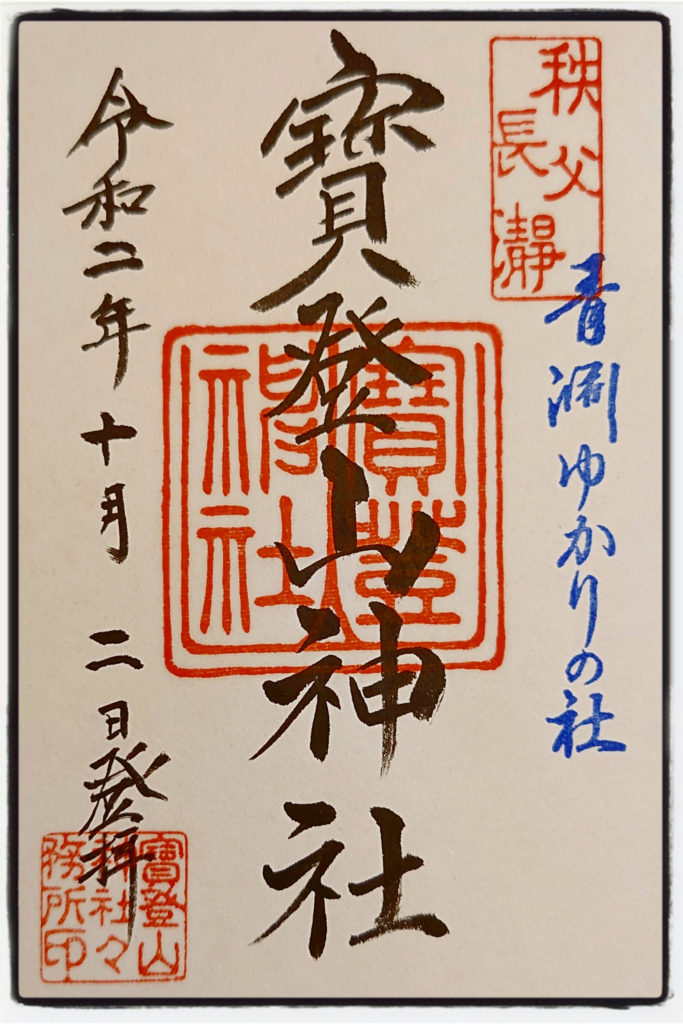 秩父
長瀞
青淵ゆかりの社
寳登山神社
寳登山
神社
令和二年十月二日登拝
寳登山
神社々
務所印